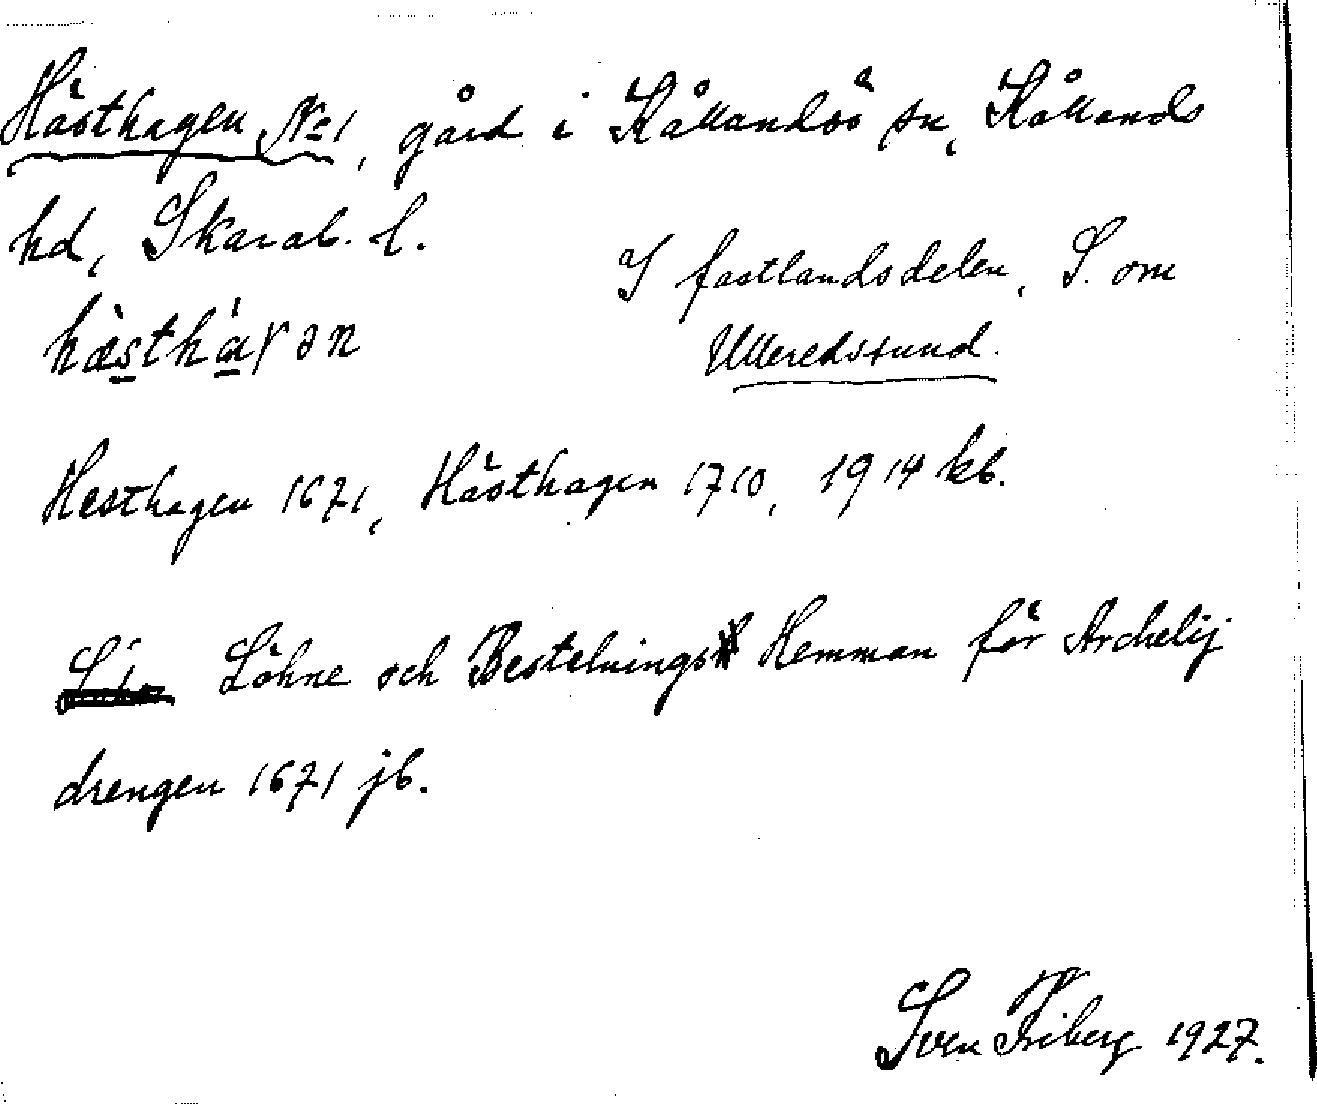 Hästhagen No 1, gård i Kållandsö sn, Kållands
hd, Skarab. l.
I fastlandsdelen, S. om
Ulleredssund.
hæsthaγən
Hesthagen 1671, Hästhagen 1710, 1914 kb.
Löhne och Bestelnings Hemman för Archelij
drengen 1671 jb.
Sven Friberg 1927.